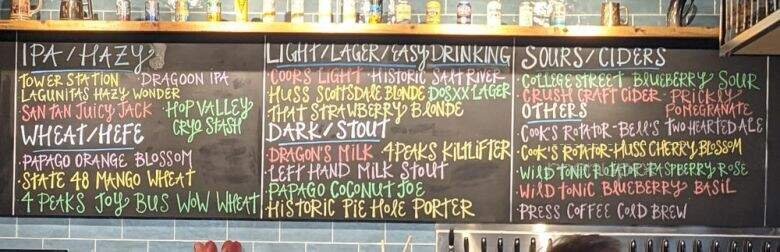 IPA/HAZY
TOWER STATION · DRAGOON IPA
LAGUNITAS HAZY WONDER
· SAN TAN JUICY JACK · HOP VALLEY
CRYO STASH
WHEAT/HEFE
· PAPAGO ORANGE BLOSSOM
· STATE 48 MANGO WHEAT
· 4 PEAKS JOY BUS WOW WHEAT
LIGHT/LAGER/EASY DRINKING
· COORS LIGHT · HISTORIC SALT RIVER
· HUSS SCOTTSDALE BLONDE · DOS XX LAGER
· THAT STRAWBERRY BLONDE
DARK/STOUT
· DRAGON'S MILK · 4 PEAKS KILTLIFTER
· LEFT HAND MILK STOUT
· PAPAGO COCONUT JOE
· HISTORIC PIE HOLE PORTER
SOURS/CIDERS
· COLLEGE STREET BLUEBERRY SOUR
· CRUSH CRAFT CIDER - PRICKLY
POMEGRANATE
OTHERS
· COOK'S ROTATOR - BELL'S TWO HEARTED ALE
· COOK'S ROTATOR - HUSS CHERRY BLOSSOM
· WILD TONIC ROTATOR - RASPBERRY ROSE
· WILD TONIC BLUEBERRY BASIL
· PRESS COFFEE COLD BREW